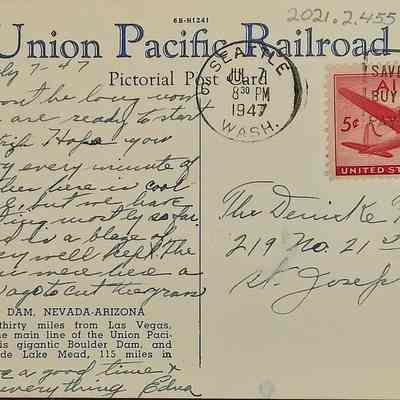 6B-H1241
2021.2.455
Union Pacific Railroad
Pictorial Post Card
SEATTLE
JUL 7
8 30 PM
1947
WASH.
SAVE
BUY
AI
5¢
UNITED ST
ly 7-47
out be long now
are ready to start
Hope you
every minute of
here is cool
but we have
mostly so far.
is a blaze of
well kept. The
were here a
ago to cut the grass
DAM, NEVADA-ARIZONA
thirty miles from Las Vegas,
the main line of the Union Paci-
is gigantic Boulder Dam, and
de Lake Mead, 115 miles in
a good time &
everything Edna
The
219 No. 21
St. Joseph